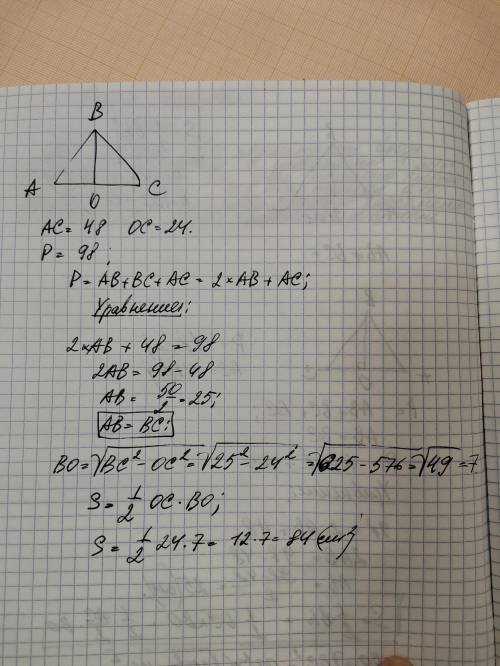 B
A
O
C
AC = 48 OC = 24.
P = 98;
P = AB + BC + AC = 2 × AB + AC;
Уравнение:
2 × AB + 48 = 98
2AB = 98 - 48
AB = 50/2 = 25;
AB = BC;
BO = √BC² - OC² = √25² - 24² = √625 - 576 = √49 = 7
S = 1/2 OC · BO;
S = 1/2 24 · 7 = 12 · 7 = 84 (см²)